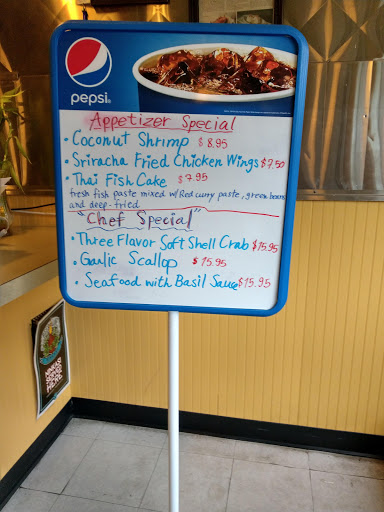 pepsi
Appetizer Special
• Coconut Shrimp $8.95
• Sriracha Fried Chicken Wings $7.50
• Thai Fish Cake $7.95
fresh fish paste mixed w/Red curry paste, green beans
and deep-fried
"Chef Special"
• Three Flavor Soft Shell Crab $15.95
• Garlic Scallop $15.95
• Seafood with Basil Sauce $15.95